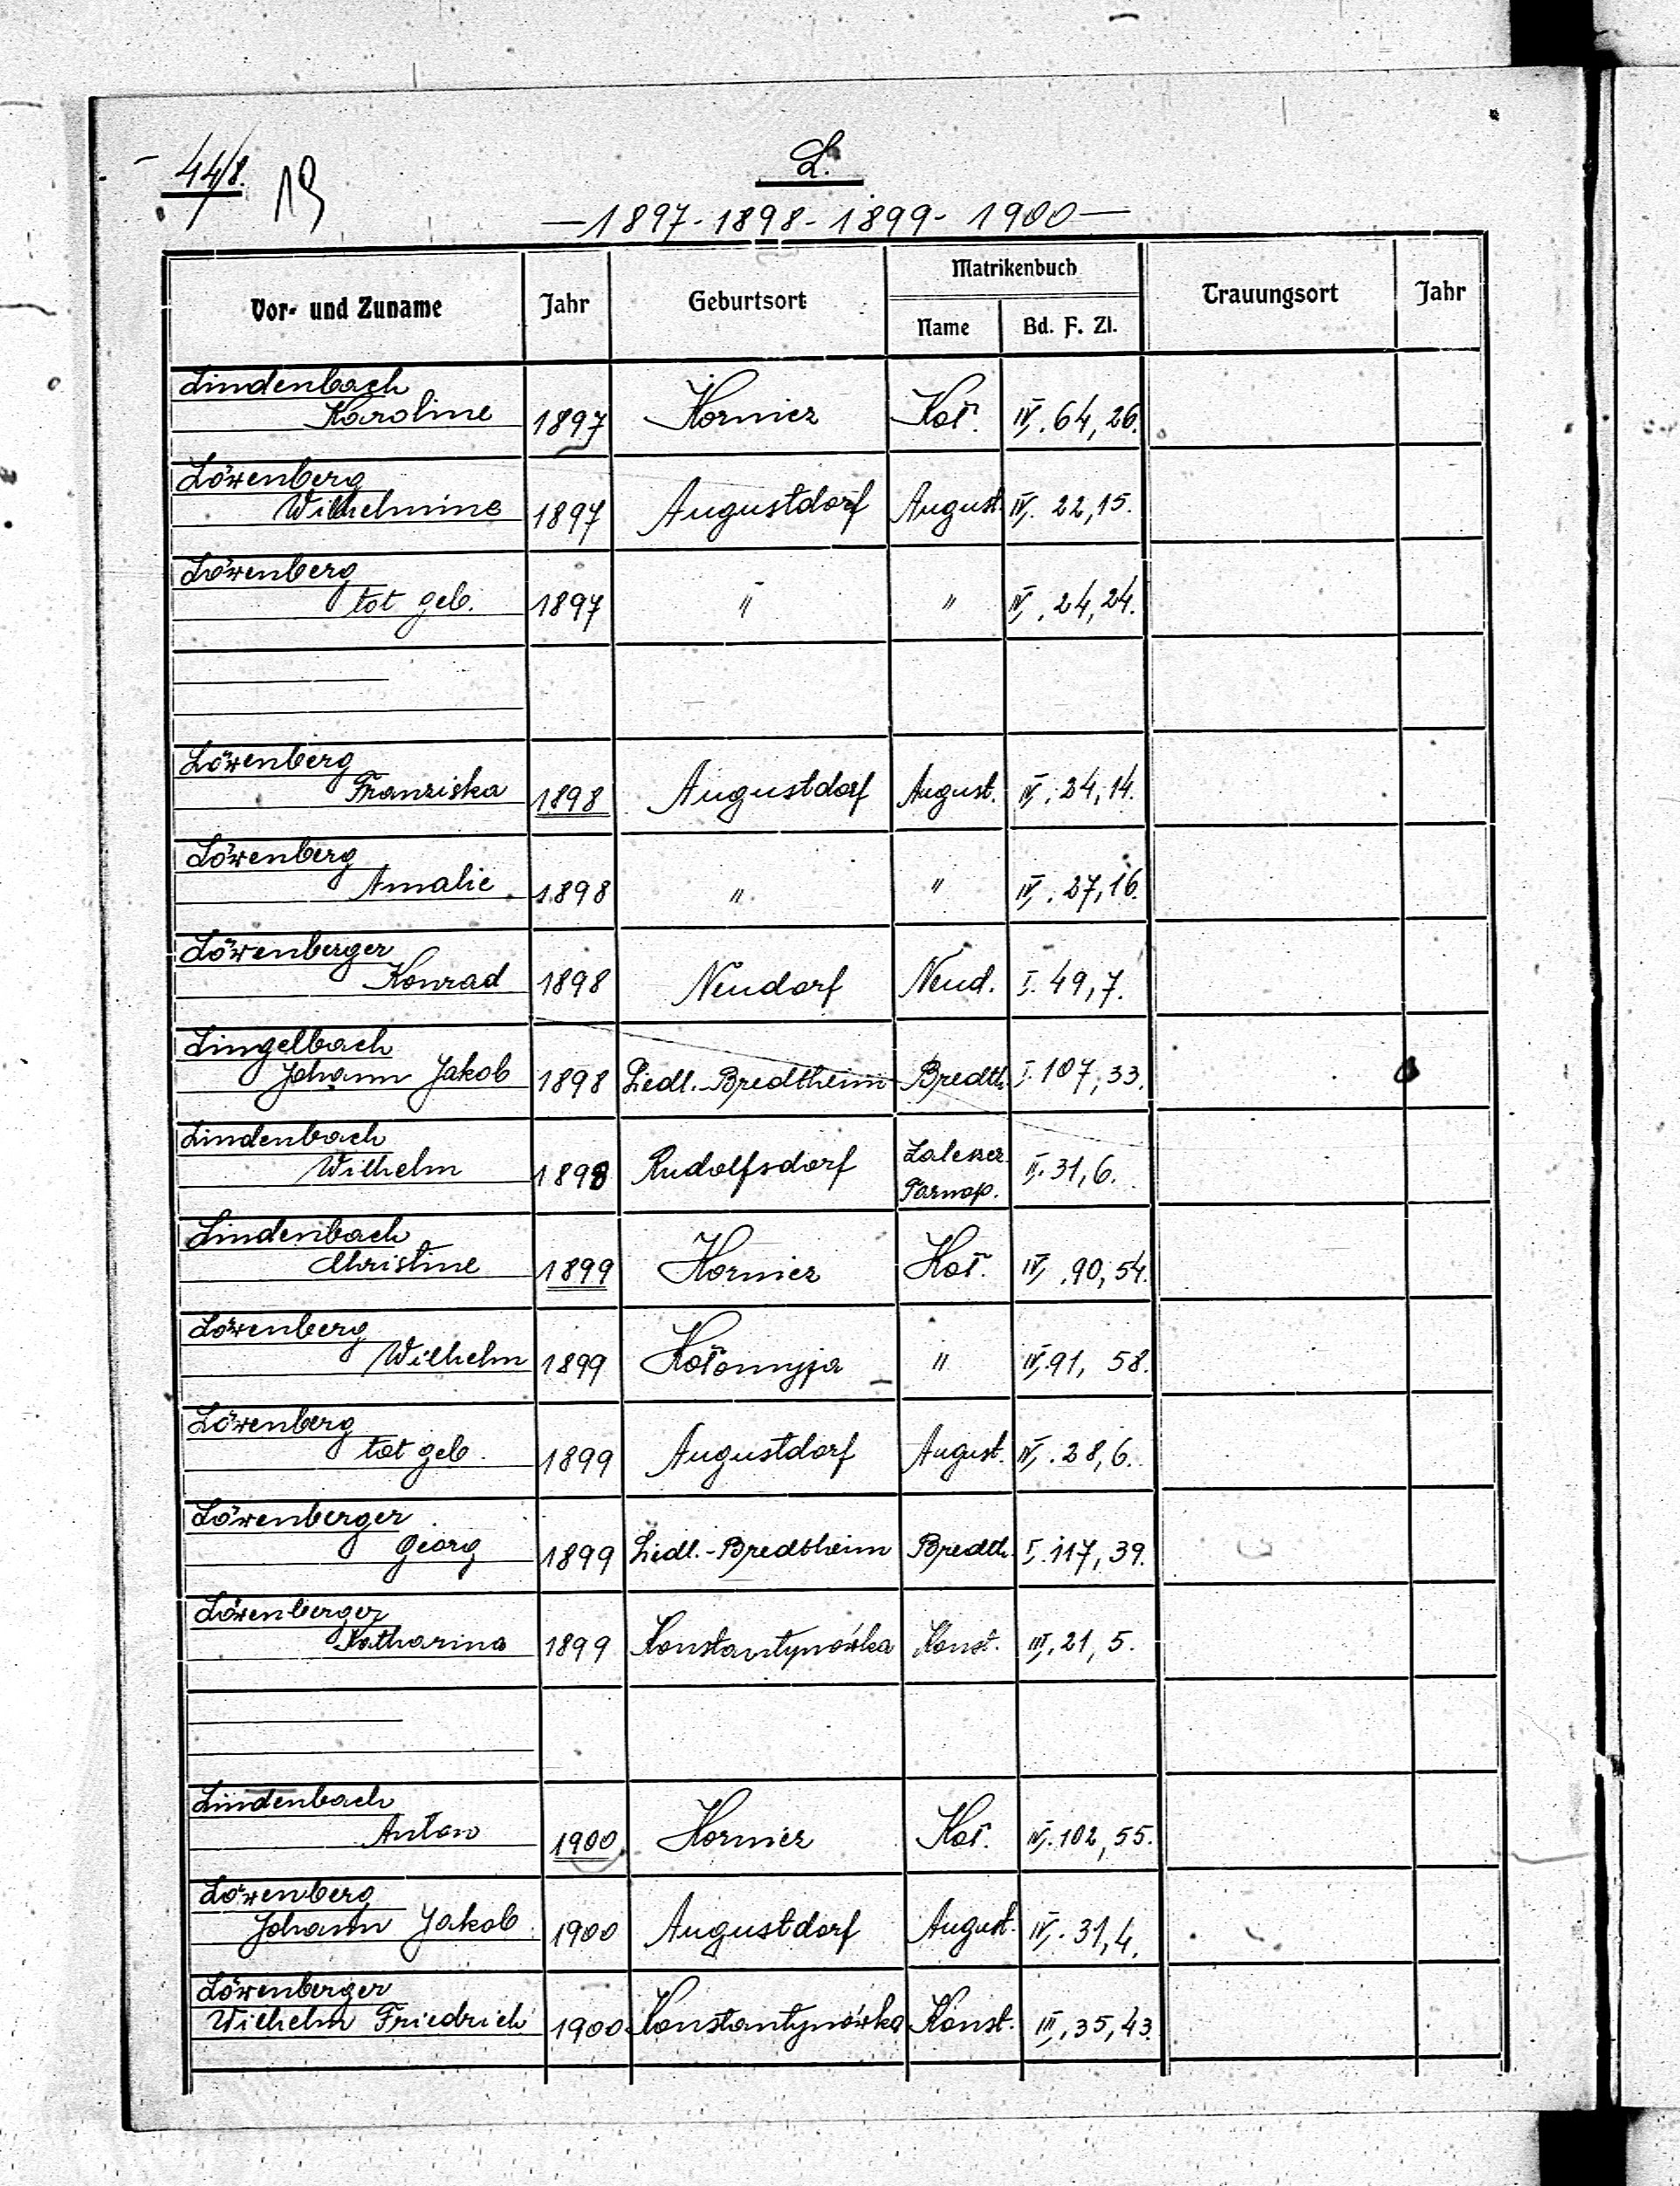 44/8. 19
L.
—1897-1898-1899-1900—
Vor- und Zuname Jahr Geburtsort Matrikenbuch Trauungsort Jahr
Name Bd. F. Zl.
Lindenbach
Karoline 1897 Kornicz Koł. IV. 64, 26.
Löwenberg
Wilhelmine 1897 Augustdorf August. IV. 22, 15.
Löwenberg
tot geb. 1897 " " IV. 24, 24.
Löwenberg
Franziska 1898 Augustdorf August. IV. 24, 14.
Löwenberg
Amalie 1898 " " IV. 27, 16.
Löwenberger
Konrad 1898 Neudorf Neud. I. 49, 7.
Lingelbach
Johann Jakob 1898 Siedl.-Bredtheim Bredth. I. 107, 33.
Lindenbach
Wilhelm 1898 Rudolfsdorf Zaleszcz. Tarnop. II. 31, 6.
Lindenbach
Christine 1899 Kornicz Koł. IV. 90, 54.
Löwenberg
Wilhelm 1899 Kołomyja " IV. 91, 58.
Löwenberg
tot geb. 1899 Augustdorf August. IV. 28, 6.
Löwenberger
Georg 1899 Siedl.-Bredtheim Bredth. I. 117, 39.
Löwenberger
Katharina 1899 Konstantynówka Konst. III. 21, 5.
Lindenbach
Anton 1900 Kornicz Koł. IV. 102, 55.
Löwenberg
Johann Jakob 1900 Augustdorf August. IV. 31, 4.
Löwenberger
Wilhelm Friedrich 1900 Konstantynówka Konst. III, 35, 43.